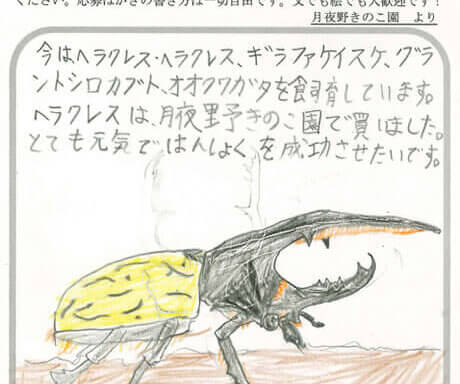 ください。応募はがきの書き方は一切自由です。文でも絵でも大歓迎です！
月夜野きのこ園　より
今はヘラクレス・ヘラクレス、ギラファケイスケ、グラ
ントシロカブト、オオクワガタを飼育しています。
ヘラクレスは、月夜野きのこ園で買いました。
とても元気ではんしょくを成功させたいです。